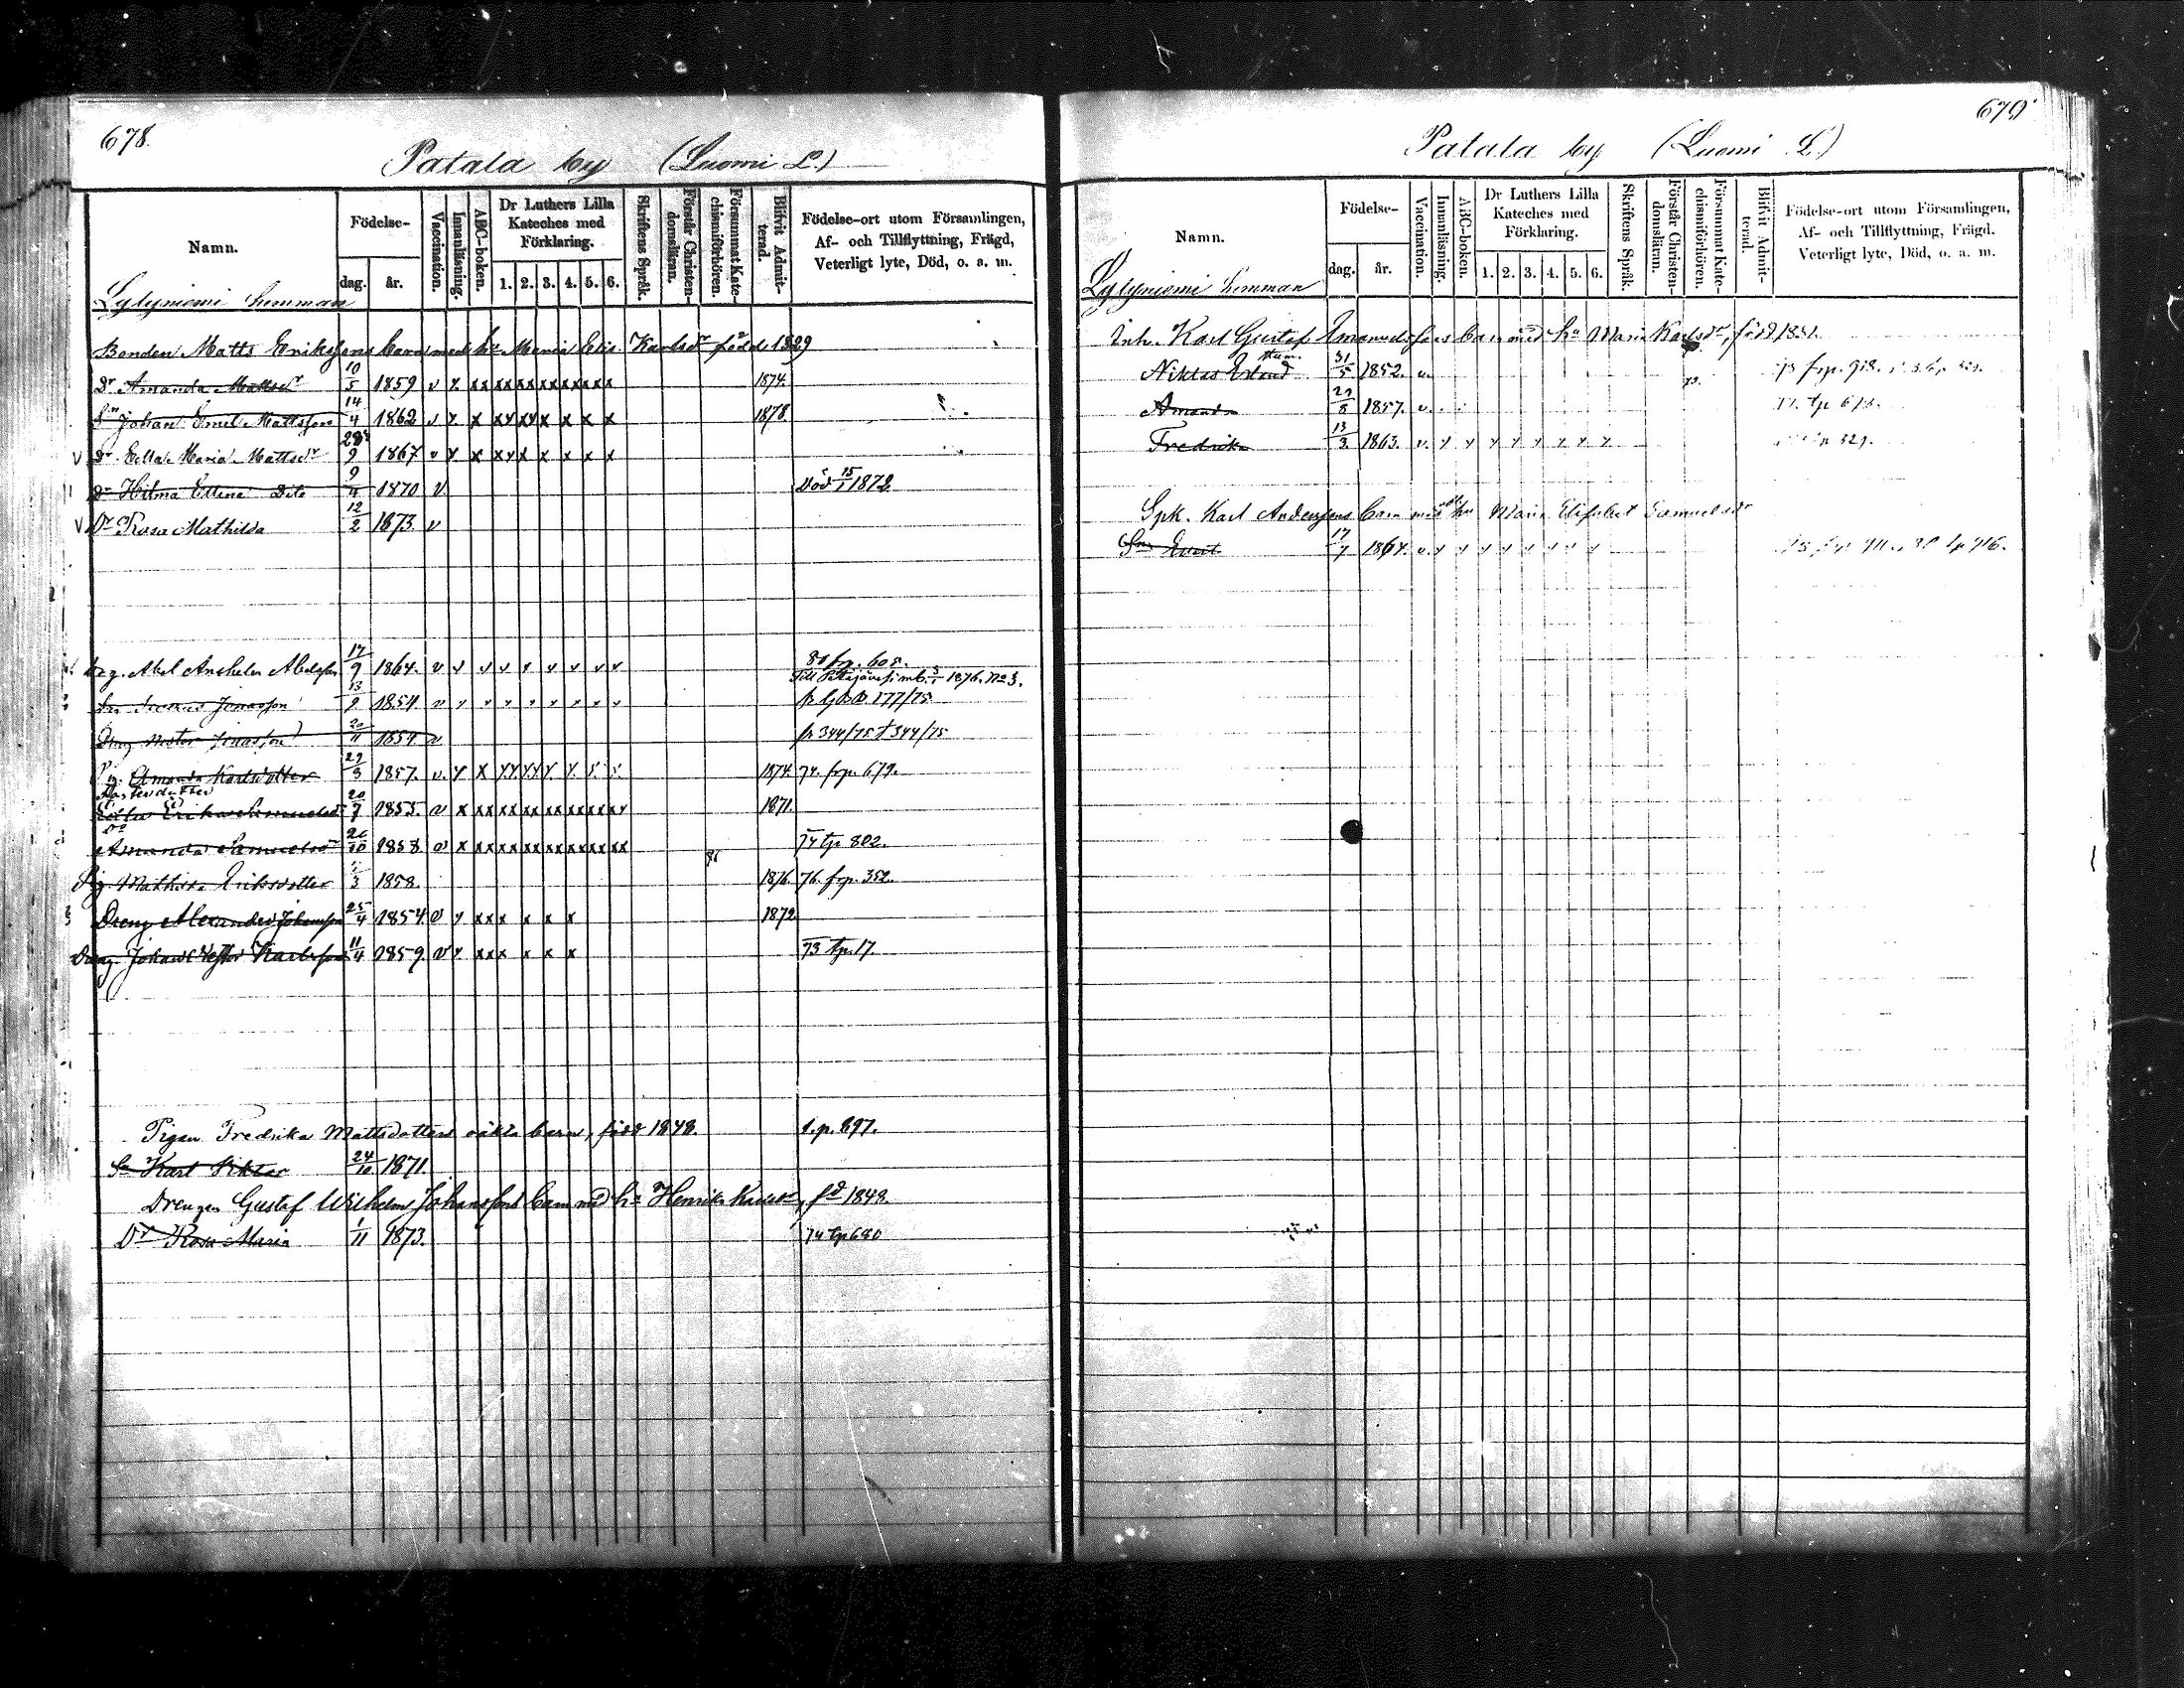 678.
Patala by (Luomi L.)
Namn.
Födelse-
dag.
år.
Vaccination.
Innanläsning.
ABC-boken.
Dr Luthers Lilla
Kateches med
Förklaring.
1. 2. 3. 4. 5. 6.
Skriftens Språk.
Förstår Christen-
domsläran.
Försummat Kate-
chismiförhören.
Blifvit Admit-
terad.
Födelse-ort utom Församlingen,
Af- och Tillflyttning, Frägd,
Veterligt lyte, Död, o. a. m.
Lylyniemi hemman
Bonden Matts Erikssons barn med hu Maria Karlsdr född 1829
Dr Amanda Mattsdr 10/5 1859 v x xx xx xx xx xx xx xx 1874.
Sn Johan Emil Mattsson 14/4 1862 v x x xx xx x x x x 1878.
v Dr Edla Maria Mattsdr 28/9 1867 v x x xx x x x x x
Dr Hilma Ellina Dito 9/4 1870 v Död 15/1 1872
v Dr Rosa Mathilda 12/2 1873 v
Drg. Abel Anshelm Abelsson 17/9 1864. v v v v v v v v v 80 frp. 605.
Till Petäjävesi mb. 5/1 1876. No 3.
Jonasson 13/9 1854 v v v v v v v v v 177/75
Dreng Jonasson 20/11 1854 v fr 344/75 t 344/75
Pig. Amanda Karlsdotter 29/3 1857. v. x x xx xx x x x x 1874. 74. frp. 679.
Fosterdotter
Edla Erika Samuelsdr 20/7 1855. v x xx xx xx xx xx xx xx 1871.
Dr
Amanda Samuelsdr 26/10 1858. v x xx xx xx xx xx xx xx 74 tp 802.
Pig. Mathilda Eriksdotter 3 1858. 1876. 76. frp. 352.
Dreng Alexander Johansson 25/4 1854. v x xx x x x x 1872
Dreng Johan Nestor Karlsson 11/4 1859. v x xx x x x x 73 tp. 17.
Pigan Fredrika Mattsdotters oäkta barn, född 1848. l. p. 897.
Sn Karl Viktor 24/10 1871.
Drengen Gustaf Wilhelm Johanssons barn md hu Henrika fd 1848.
Dr Rosa Maria 1/11 1873. 74 tp 680
679
Patala by (Luomi L.)
Namn.
Födelse-
dag.
år.
Vaccination.
Innanläsning.
ABC-boken.
Dr Luthers Lilla
Kateches med
Förklaring.
1. 2. 3. 4. 5. 6.
Skriftens Språk.
Förstår Christen-
domsläran.
Försummat Kate-
chismiförhören.
Blifvit Admit-
terad.
Födelse-ort utom Församlingen,
Af- och Tillflyttning, Frägd.
Veterligt lyte, Död, o. a. m.
Lylyniemi hemman
Inh. Karl Gustaf Emanuelssons barn med hu Maria Karlsdr, född 1831.
Niklas Erland 31/5 1852. v. 73 frp. 918.
Amanda 29/3 1857. v.
Fredrika 13/3 1863. v. y y y y y y y y
Spk. Karl Anderssons barn med hu Maria Elisabet Samuelsdr
Sn Evert 17/7 1864. v. y y y y y y y y